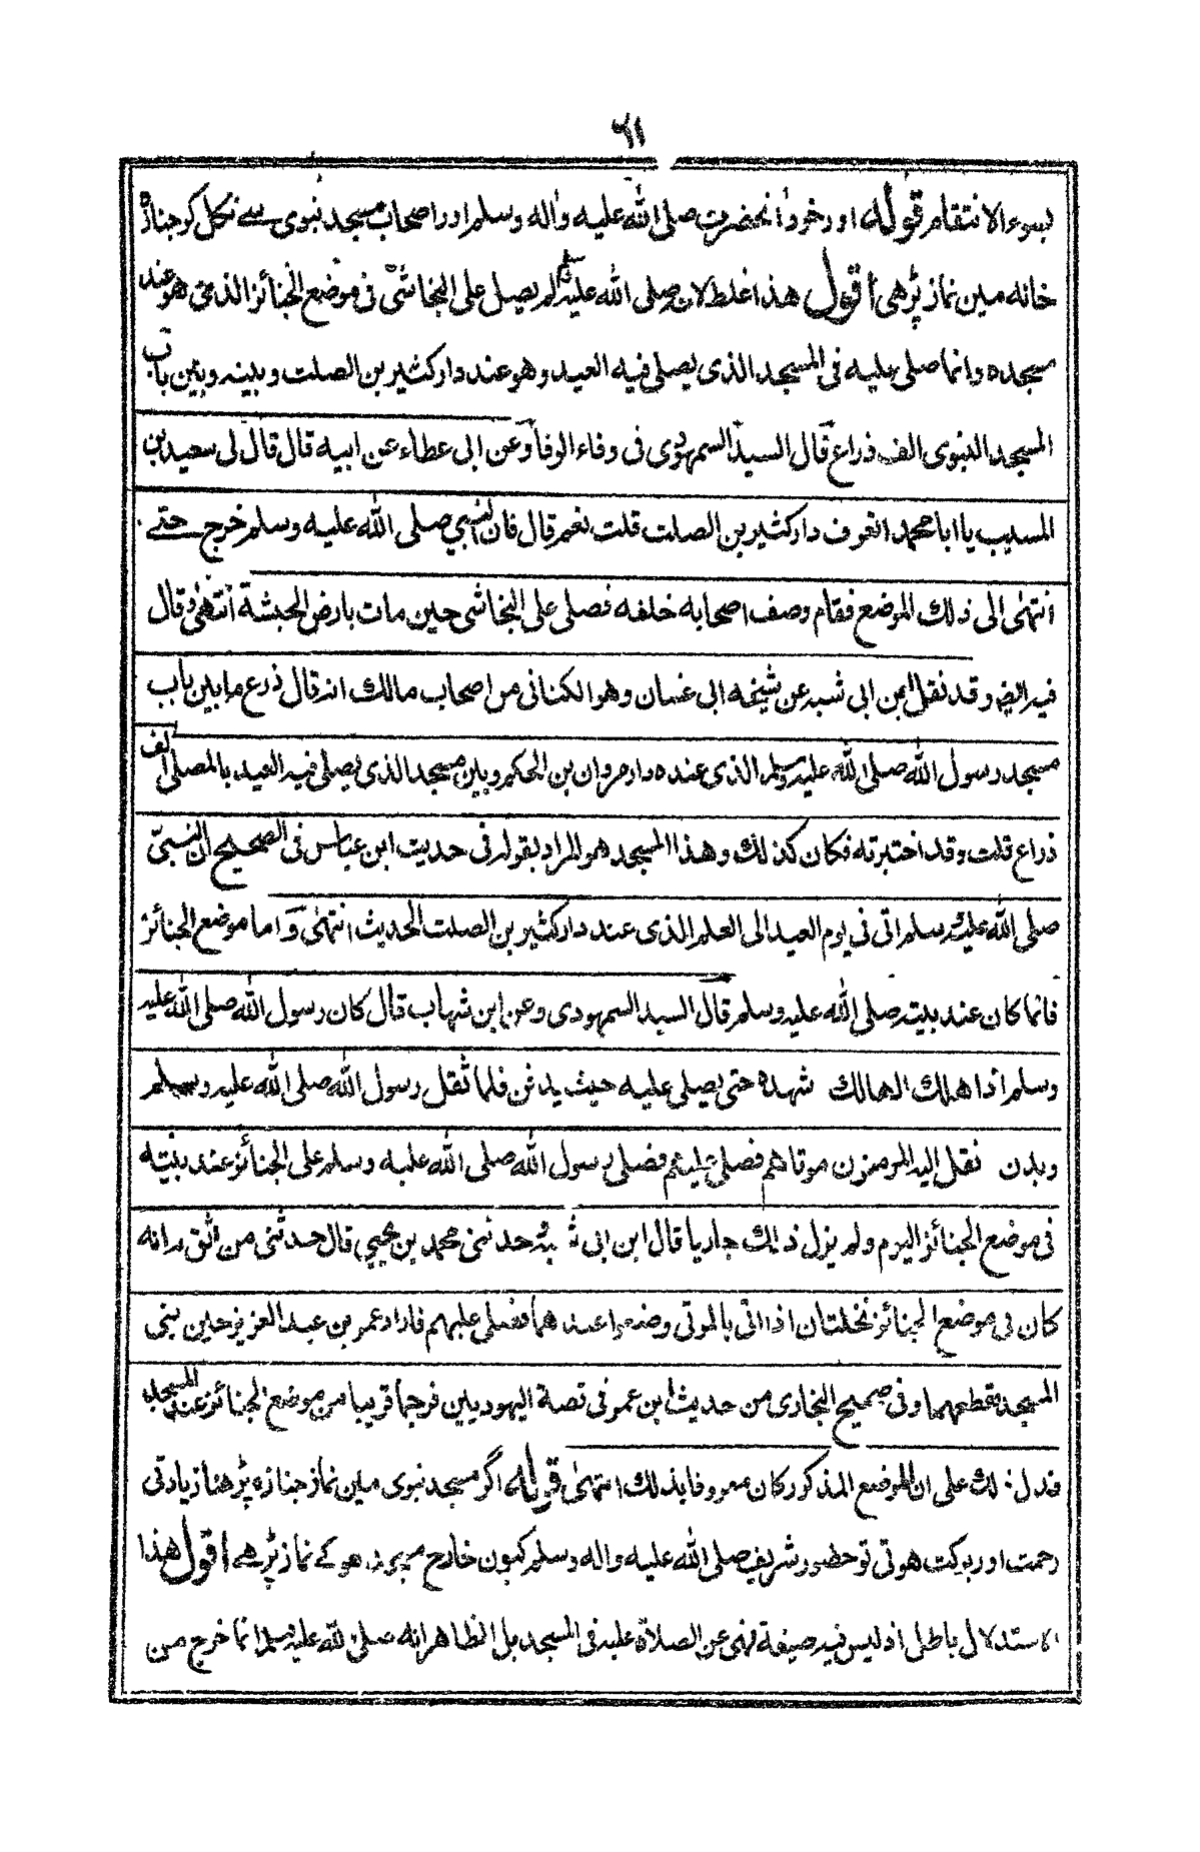 ٦١
بسوء الانتقام قوله اور خود أنحضرت صلى الله عليه واله وسلم اور اصحاب مسجد نبوى سے نكل كر جنازه
خانه مين نماز پڑهى أقول هذا غلط لان صلى الله عليه وسلم لم يصل على النجاشى فى موضع الجنائز الذى هو عند
مسجده وانما صلى عليه فى المسجد الذى يصلى فيه العيد وهو عند دار كثير بن الصلت وبينه وبين باب
المسجد النبوى الف ذراع قال السيد السمهودى فى وفاء الوفا وعن ابى عطاء عن ابيه قال قال لى سعيد بن
المسيب يا ابا محمد اتعرف دار كثير بن الصلت قلت نعم قال فان النبي صلى الله عليه وسلم خرج حتے
انتهى الى ذلك الموضع فقام وصف اصحابه خلفه فصلى على النجاشى حين مات بارض الحبشة انتهى وقال
فيه ايضا وقد نقل ابن ابى شبه عن شيخه ابى غسان وهو الكنانى من اصحاب مالك انه قال ذرع ما بين باب
مسجد رسول الله صلى الله عليه وسلم الذى عنده دار مروان بن الحكم وبين مسجد الذى يصلى فيه العيد بالمصلى الف
ذراع قلت وقد اختبرته فكان كذلك وهذا المسجد هو المراد بقوله فى حديث ابن عباس فى الصحيح ان النبى
صلى الله عليه وسلم اتى فى يوم العيد الى العلم الذى عند دار كثير بن الصلت الحديث انتهى واما موضع الجنائز
فانما كان عند بيته صلى الله عليه وسلم قال السيد السمهودى وعن ابن شهاب قال كان رسول الله صلى الله عليه
وسلم اذا هلك الهالك شهده حتى يصلى عليه حيث يدفن فلما ثقل رسول الله صلى الله عليه وسلم
وبدن نقل إليه المومنون موتاهم فصلى عليهم فصلى رسول الله صلى الله عليه وسلم على الجنائز عند بيته
فى موضع الجنائز اليوم ولم يزل ذلك جاريا قال ابن ابى شبة حدثنى محمد بن يحيى قال حدثنى من اثق به انه
كان فى موضع الجنائز نخلتان اذا اتى بالموتى وضعوا عندهما فصلى عليهم فاراد عمر بن عبد العزيز حين بنى
المسجد قطعهما وفى صحيح البخارى من حديث ابن عمر فى قصة اليهوديين فرجما قريبا من موضع الجنائز عند المسجد
فدل ذلك على ان الموضع المذكور كان معروفا بذلك انتهى قوله اگر مسجد نبوى مين نماز جنازه پڑهنا زيادتى
رحمت اور بركت هوتى تو حضور شريف صلى الله عليه واله وسلم كيون خارج مسجد هوكے نماز پڑهے اقول هذا
الاستدلال باطل اذ ليس فيه صيغة نهى عن الصلاة عليه فى المسجد بل الظاهر انه صلى الله عليه وسلم انما خرج من